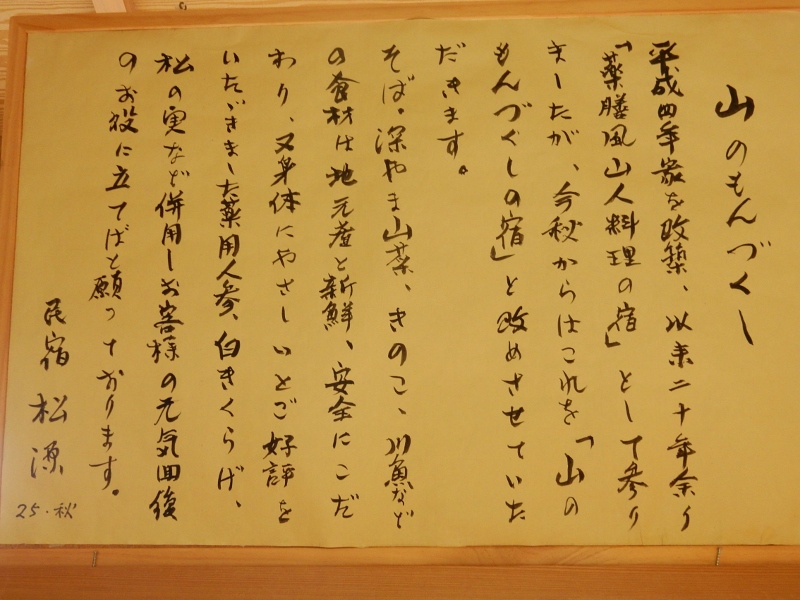 山のもんづくし
平成四年家を改築、以来二十年余り
「薬膳風山人料理の宿」として参り
ましたが、今秋からはこれを「山の
もんづくしの宿」と改めさせていた
だきます。
そば。深やま山菜、きのこ、川魚など
の食材は地元産と新鮮、安全にこだ
わり、又身体にやさしいとご好評を
いたゞきました薬用人参、白きくらげ、
松の実など併用しお客様の元気回復
のお役に立てばと願っております。
民宿 松源
25.秋